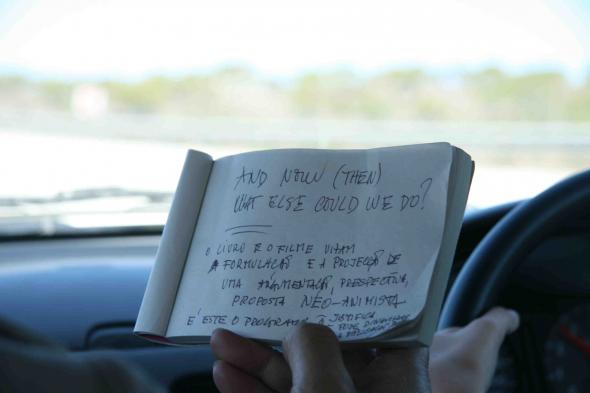 AND NOW (THEN)
WHAT ELSE COULD WE DO?
O LIVRO E O FILME VISAM
A FORMULAÇÃO E A PROJECÇÃO DE
UMA ARGUMENTAÇÃO, PRESPECTIVA,
PROPOSTA NEO-ANIMISTA
É ESTE O PROGRAMA